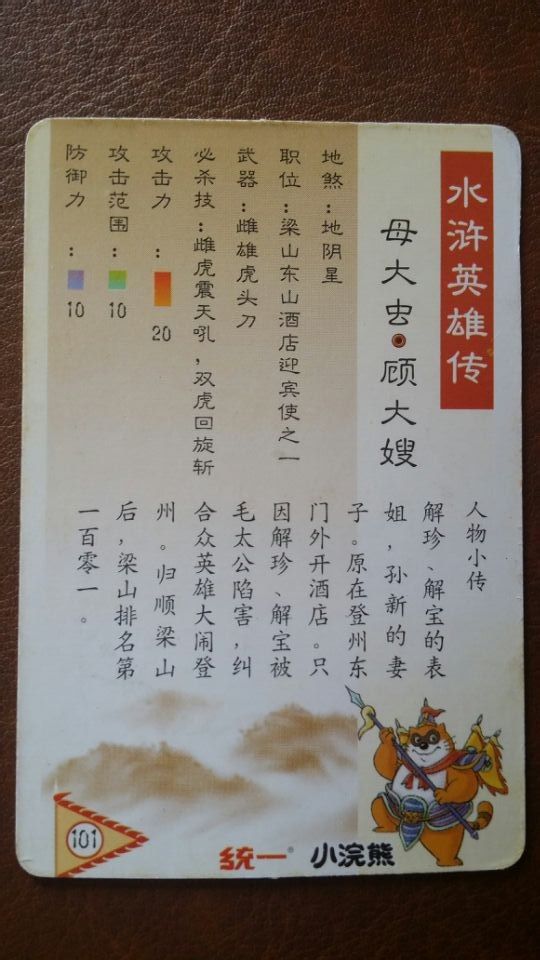 水浒英雄传
母大虫·顾大嫂
地煞：地阴星
职位：梁山东山酒店迎宾使之一
武器：雌雄虎头刀
必杀技：雌虎震天吼，双虎回旋斩
攻击力：20
攻击范围：10
防御力：10
人物小传
解珍、解宝的表
姐，孙新的妻
子。原在登州东
门外开酒店。只
因解珍、解宝被
毛太公陷害，纠
合众英雄大闹登
州。归顺梁山
后，梁山排名第
一百零一。
101
统一® 小浣熊